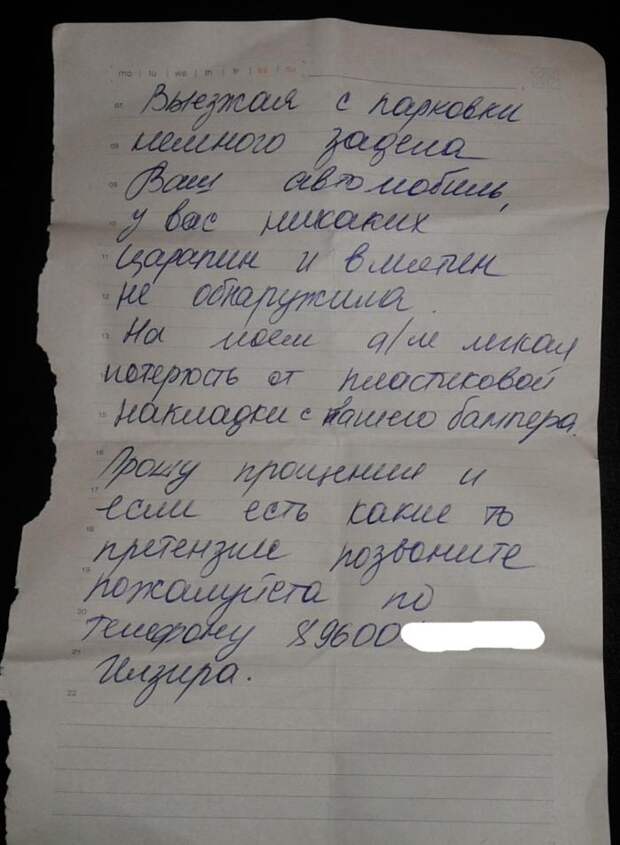 mo tu we th fr sa su
07 Выезжая с парковки
08 немного задела
09 Ваш автомобиль,
10 у вас никаких
11 царапин и вмятин
12 не обнаружила.
13 На моем а/м легкая
потертость от пластиковой
15 накладки с Вашего бампера.
16 Прошу прощения и
17 если есть какие то
18 претензие позвоните
19 пожалуйста по
20 телефону 89600
21 Илзира.
22